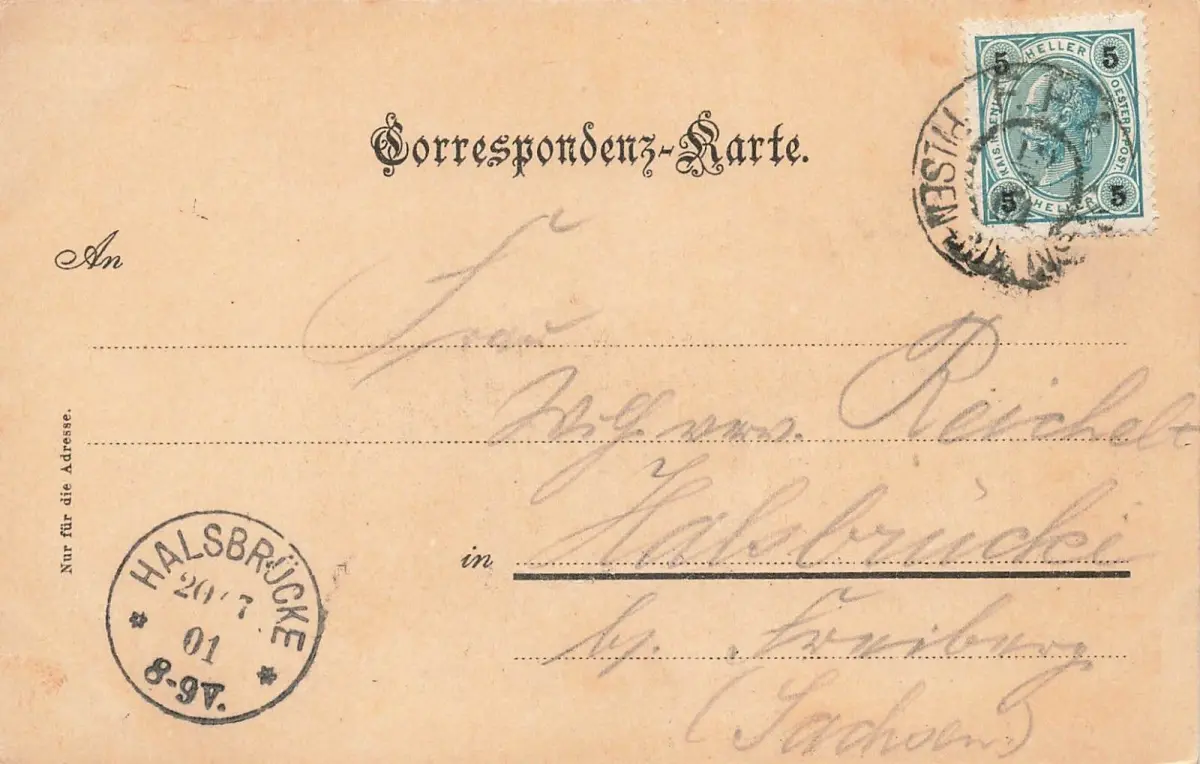 Correspondenz-Karte.
5 HELLER 5
KAIS. KÖN. OESTERR. POST
5 HELLER 5
PILSEN
An
Frau
Reichelt
Nur für die Adresse.
in Halsbrücke
Freiberg
(Sachsen)
HALSBRÜCKE
20/7
01
8-9V.